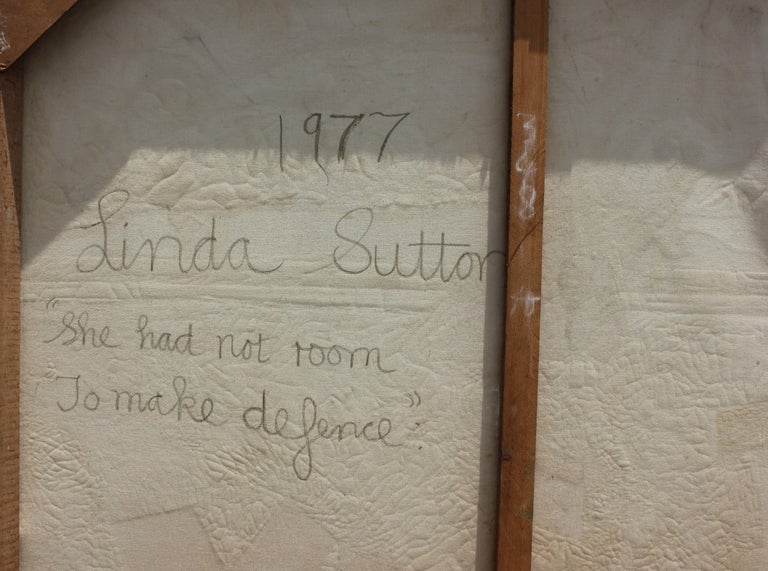 1977
Linda Sutton
"She had not room
"To make defence".